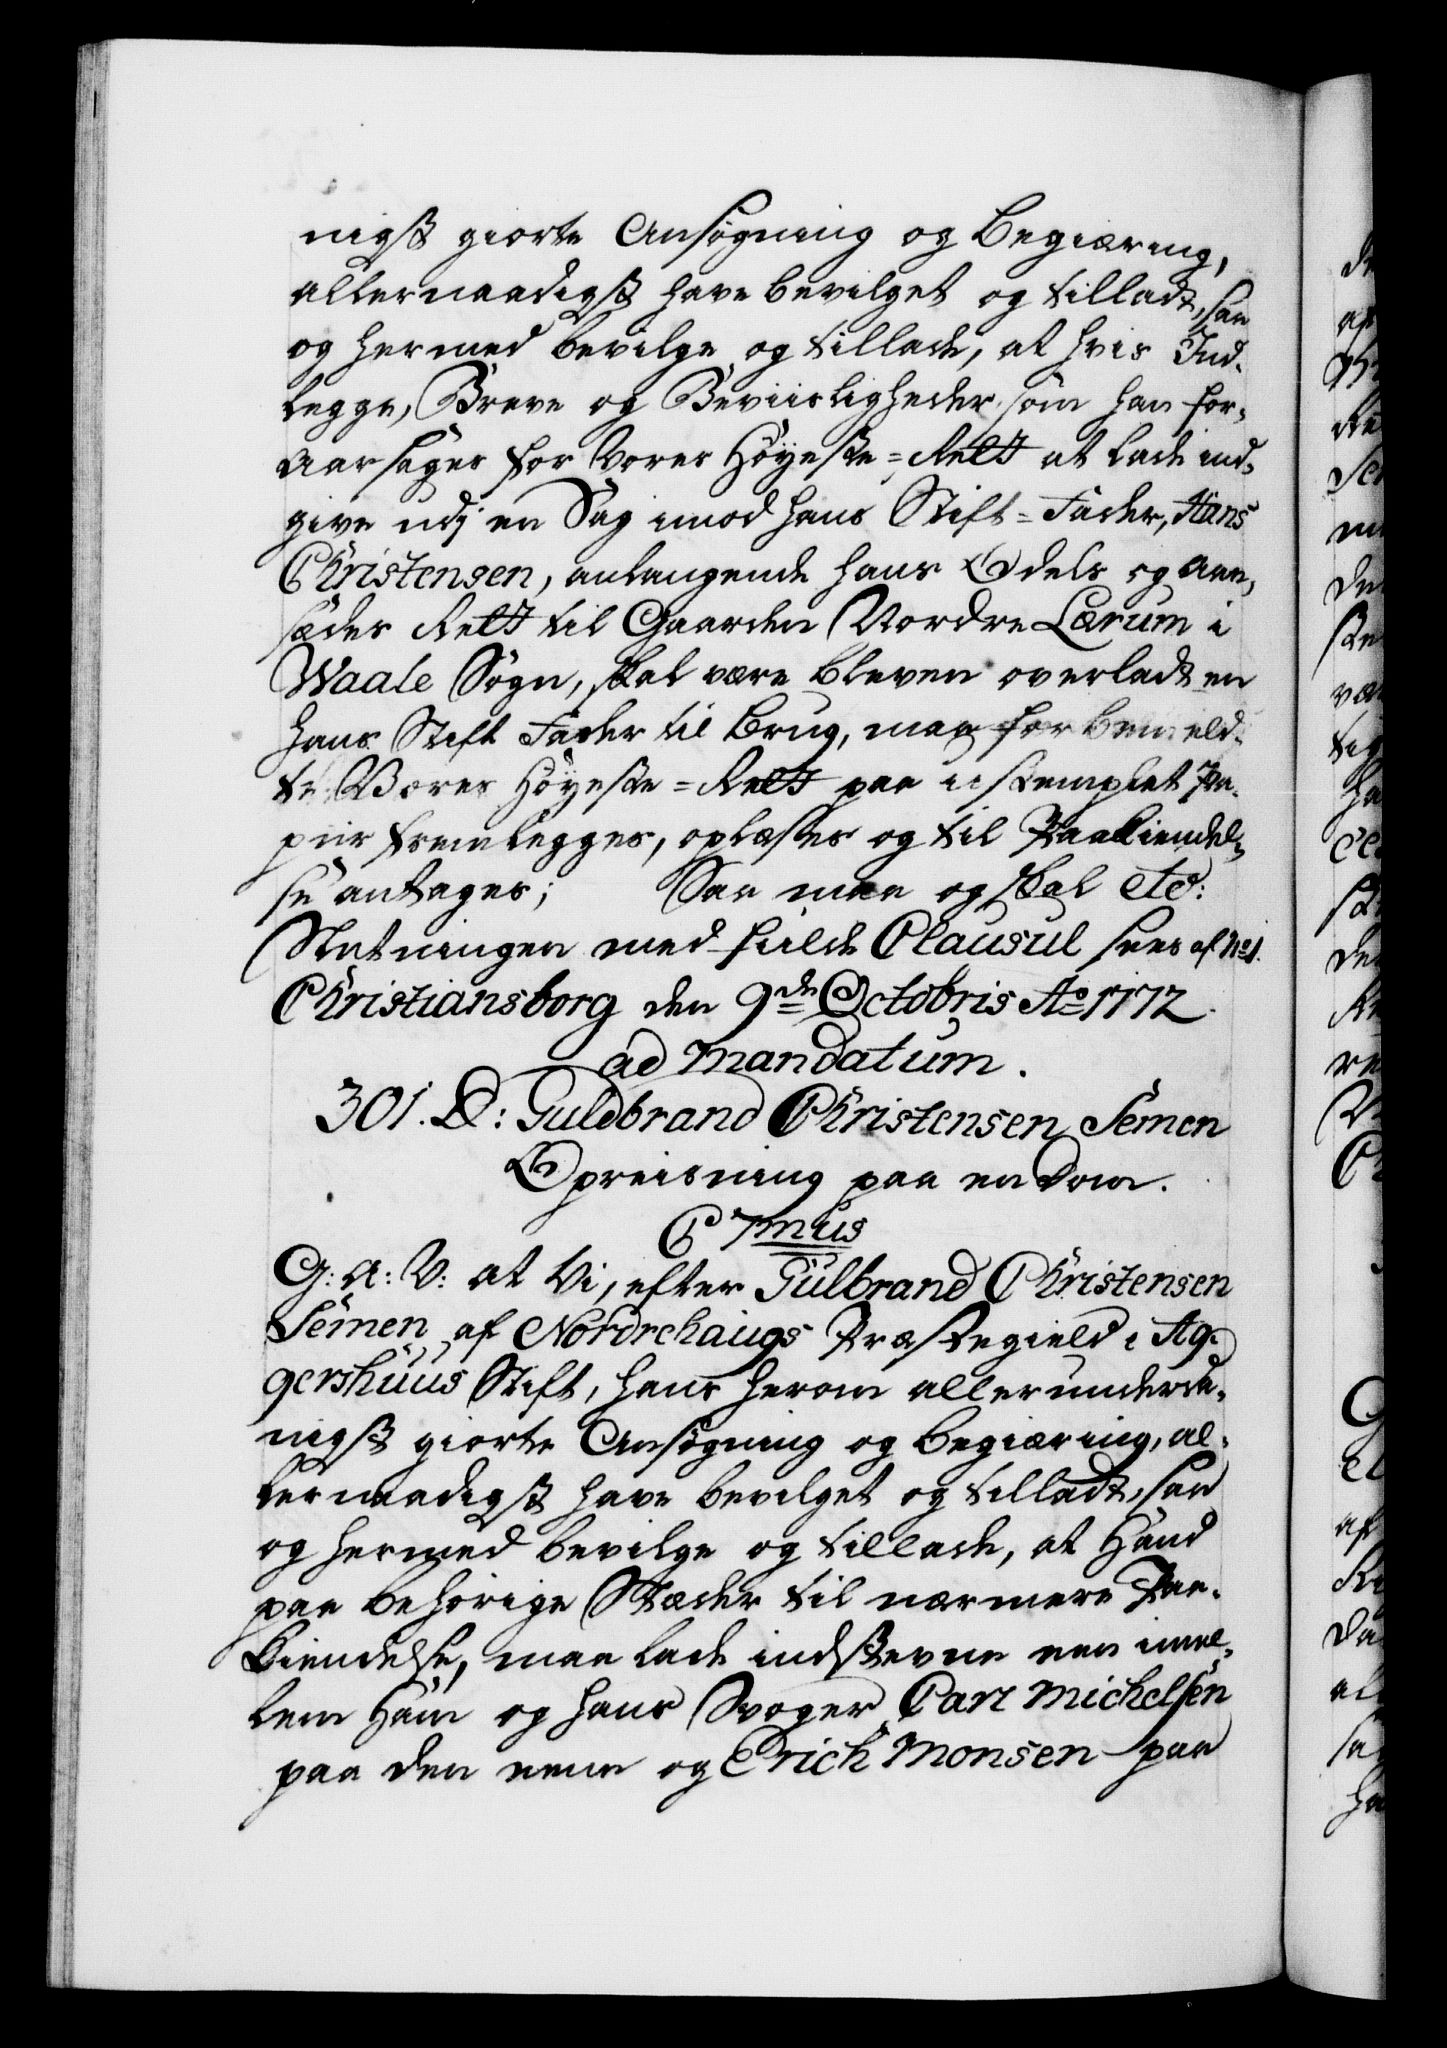 nigst giorte Ansøgning og Begiæring,
allernaadigst have bevilget og tilladt, saa
og hermed bevilge og tillade, at hvis Ind-
legge, Breve og Beviisligheder som han for-
aarsages for Vores Høyeste-Rett at lade ind-
give udj en Sag imod hans Stif-Fader, Hans
Christensen, anlangende hans Odels og Aaa-
sædes Rett til Gaarden Nordre Lærum i
Waale Sogn, skal være bleven overladt en
hans Stif Fader til Brug, maa for bemeld-
te Vores Høyeste-Rett paa ustemplet Pa-
piir fremlegges, oplæses og til Paakiendel-
se antages; Saa maa og skal etc:
Slutningen med fuilde Clausul sees af No 1.
Christiansborg den 9de Octobris Ao 1772.
ad Mandatum.
301. D: Guldbrand Christensen Semen
Opreisning paa en Dom.
C 7mus
G: A: V: at Vi, efter Gulbrand Christensen
Semen, af Nordrehaugs Præstegield i Ag-
gershuus Stift, hans herom allerunderda-
nigst giorte Ansøgning og begiæring, al-
lernaadigst have bevilget og tilladt, saa
og hermed bevilge og tillade, at Hand
paa behørige Stæder til nærmere Paa-
kiendelse, maa lade indstevne een imel-
lem Ham og hans Svoger Carl Michelsen
paa den eene og Erich Monsen paa